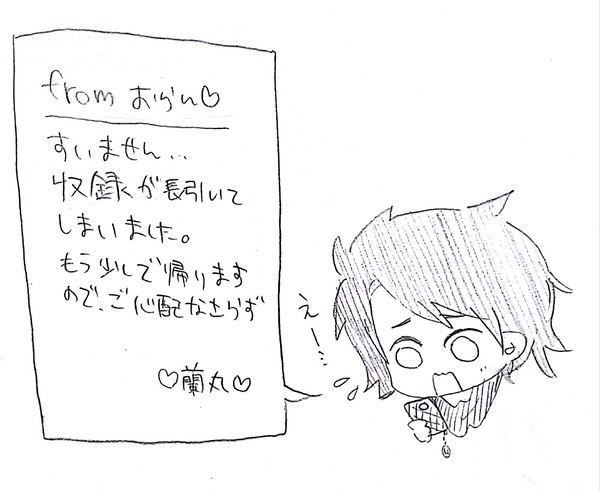 from おらん♡
すいません...
収録が長引いて
しまいました。
もう少しで帰ります
ので、ご心配なさらず
♡蘭丸♡
えー…